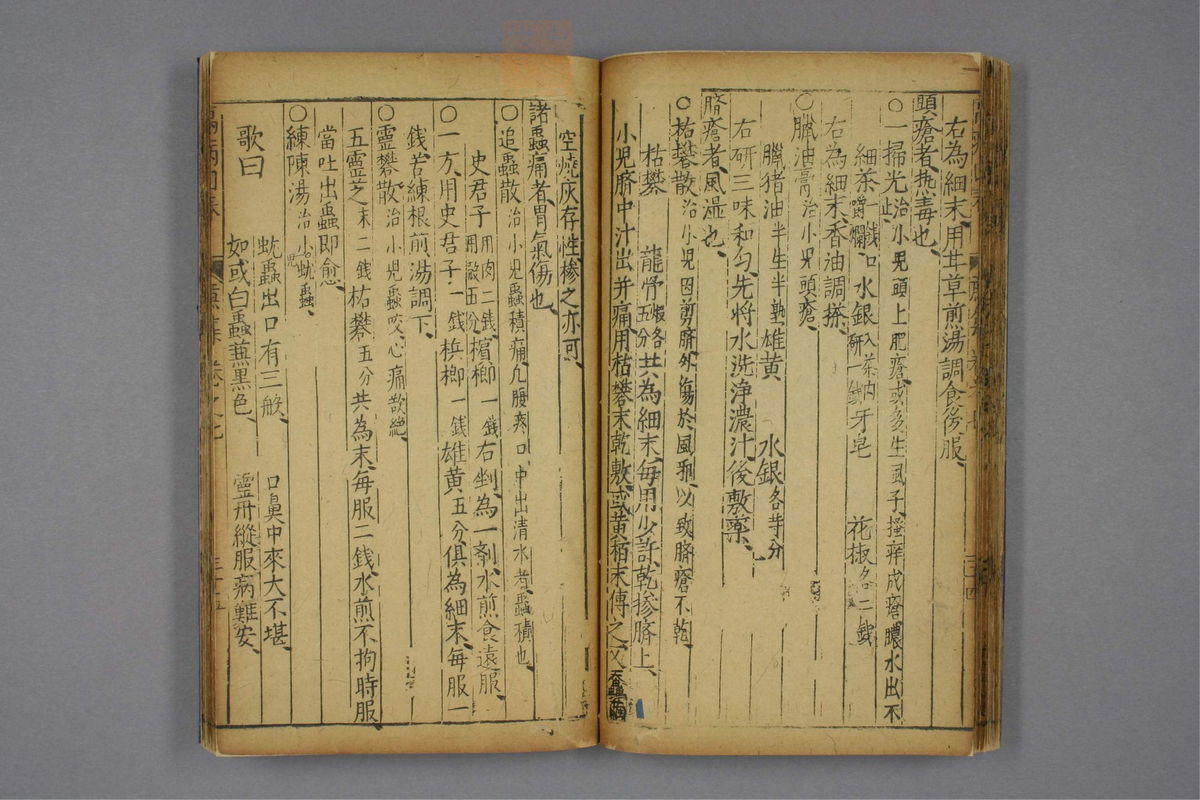 右為細末用甘草煎湯調食後服
頭瘡者熱毒也
○一掃光治小兒頭上肥瘡或多生虱子搔痒成瘡膿水出不
止
細茶一錢口嚼爛 水銀入茶內研一錢 牙皂 花椒各二錢
右為細末香油調搽
○臘油膏治小兒頭瘡
臘猪油半生半熟 雄黃 水銀各等分
右研三味和勻先將水洗淨濃汁後敷藥
臍瘡者風濕也
○枯礬散治小兒因剪臍外傷於風邪以致臍瘡不乾
枯礬 龍骨煅各五分 共為細末每用少許乾摻臍上
小兒臍中汁出并痛用枯礬末乾敷或黃柏末傅之又蚕繭
空燒灰存性摻之亦可
諸蟲痛者胃氣傷也
○追蟲散治小兒蟲積痛凡腹疼口中出清水者蟲積也
史君子用肉二錢用殼五分 檳榔一錢 右剉為一劑水煎食遠服
○一方用史君子一錢檳榔一錢雄黃五分俱為細末每服一
錢苦練根煎湯調下
○靈礬散治小兒蟲咬心痛欲絕
五靈芝末二錢枯礬五分共為末每服二錢水煎不拘時服
當吐出蟲即愈
○練陳湯治小兒蚘蟲
歌曰
蚘蟲出口有三般 口鼻中來大不堪
如或白蟲蕪黑色 靈丹縱服病難安
卷之七
三十四
三十五